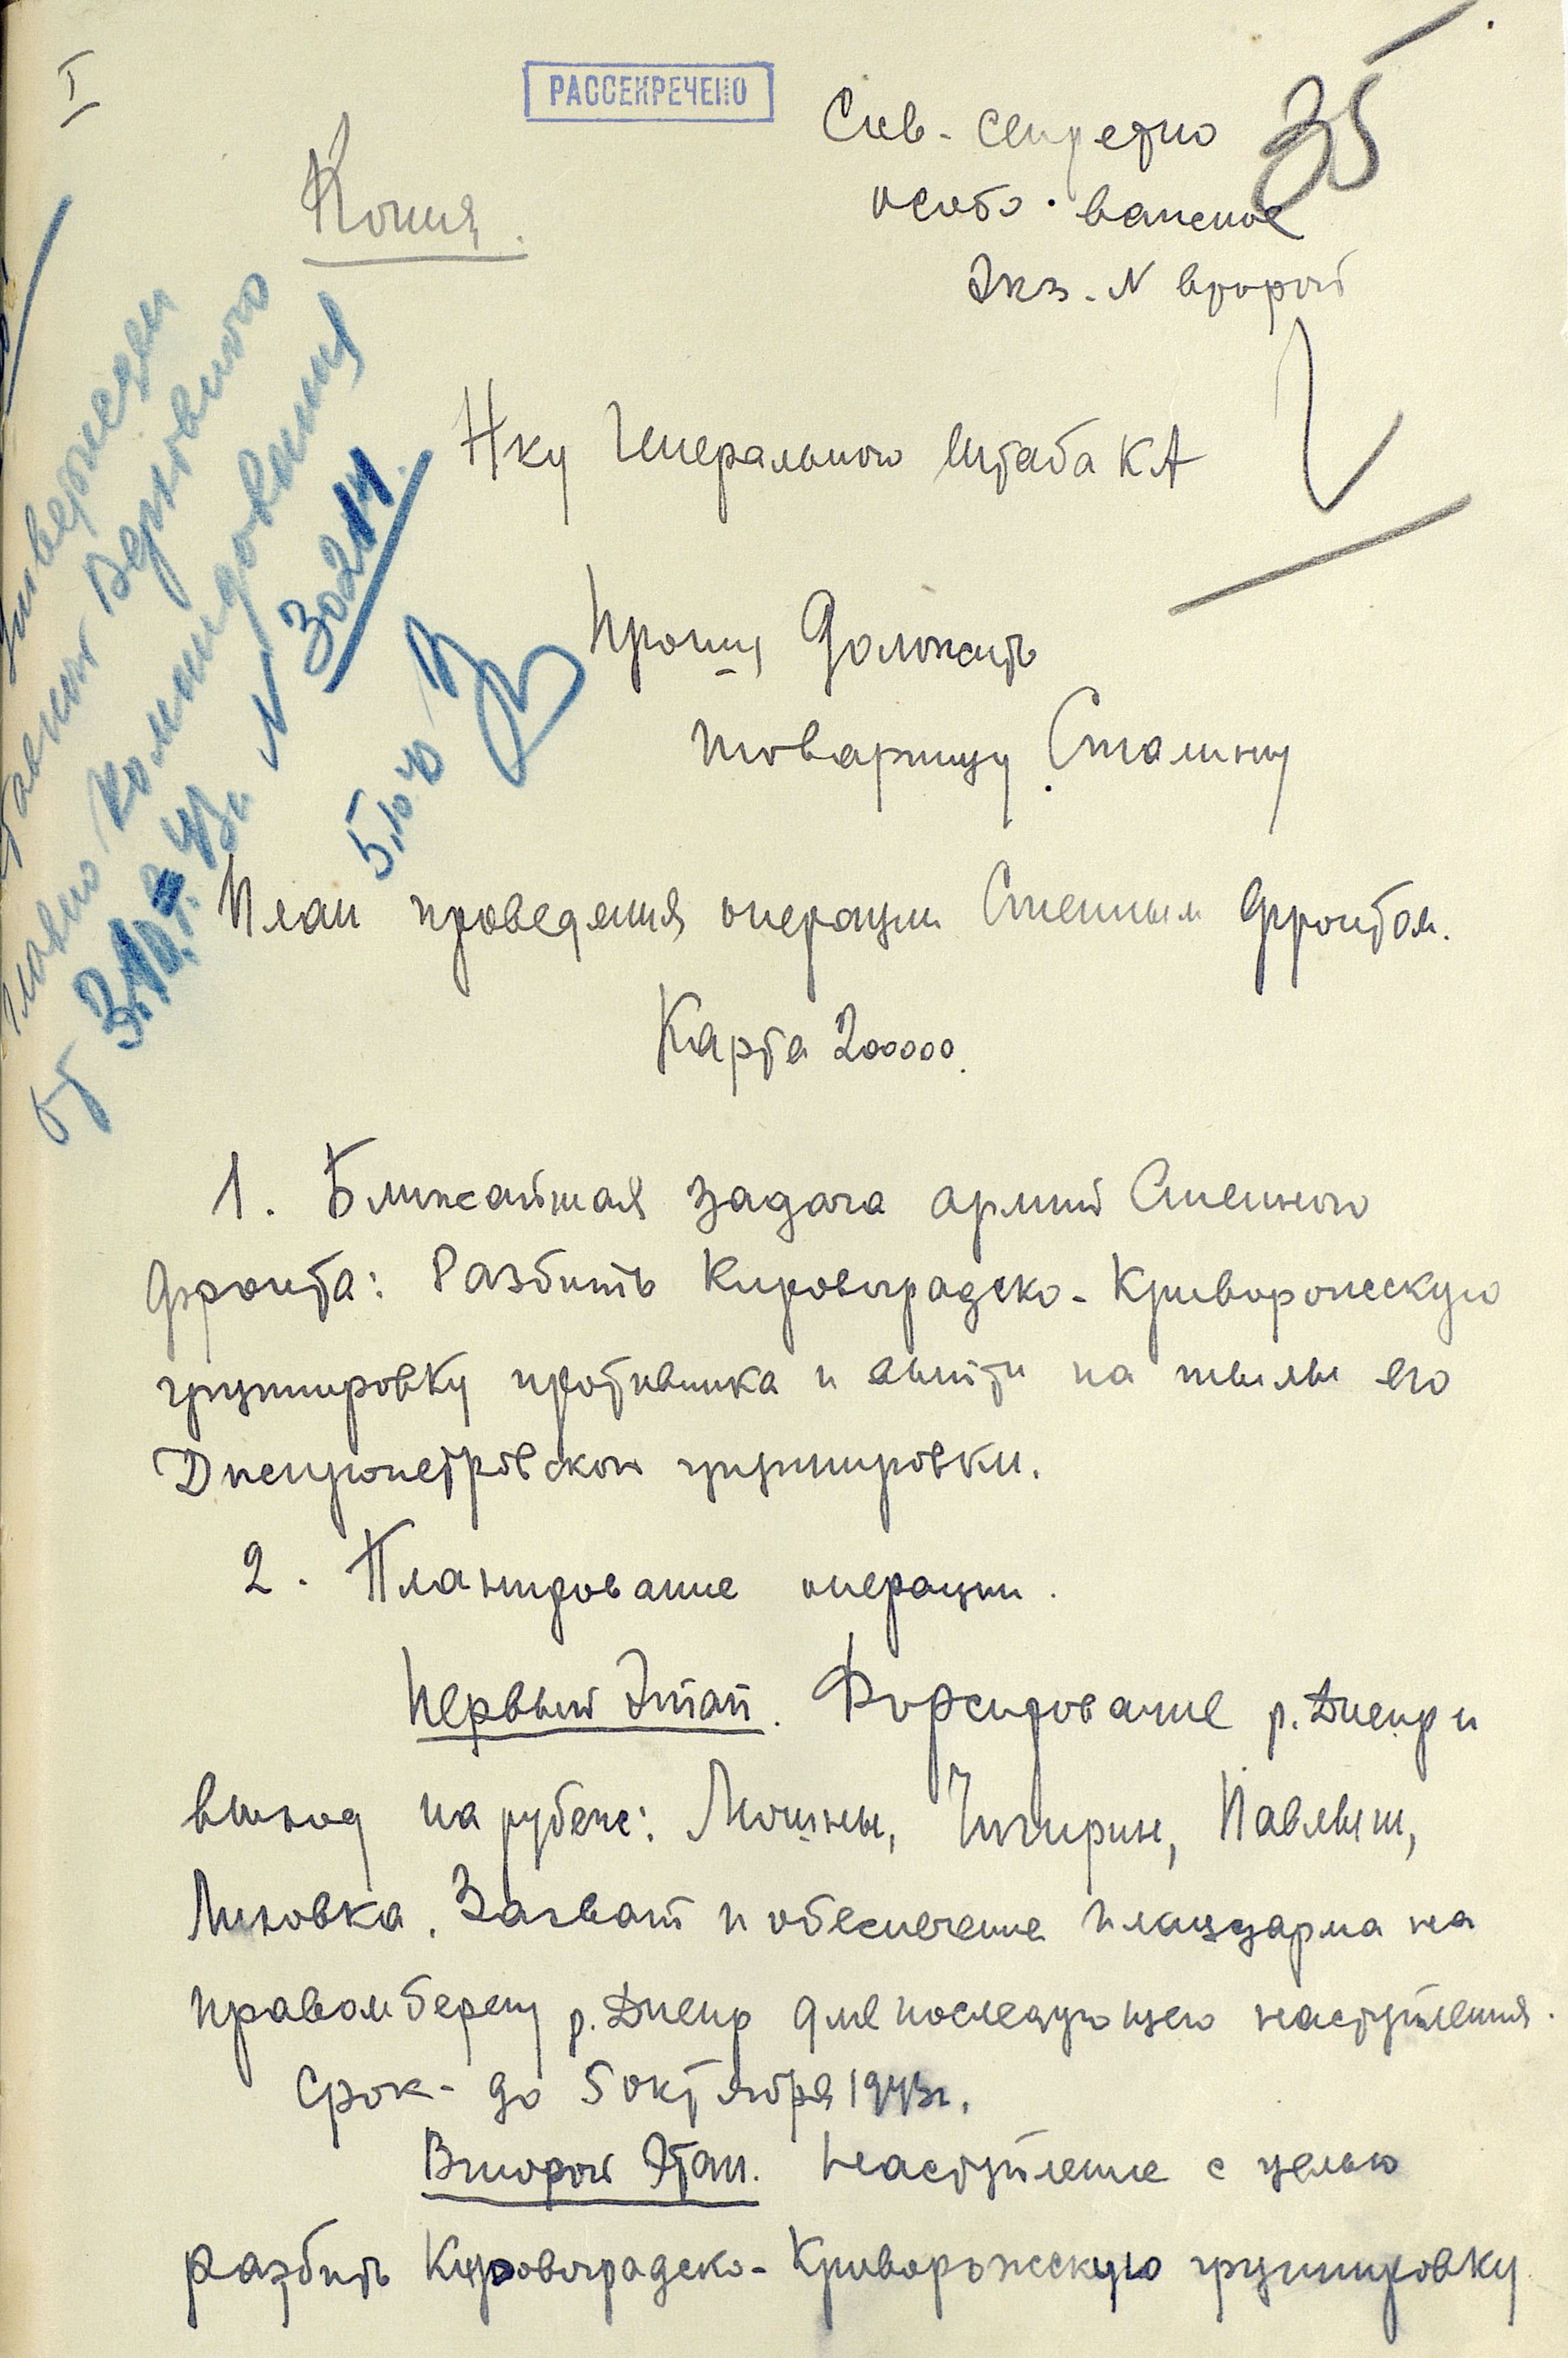 I
РАССЕКРЕЧЕНО
Сов. секретно
особо важное
Экз. N второй
35
Копия.
Нку Генерального Штаба КА
Прошу доложить
товарищу Сталину
Верховного
Главно Командования
от 3.10.43г. N 30214.
5.10.43
План проведения операции Степным фронтом.
Карта 200000.
1. Ближайшая задача армий Степного
фронта: Разбить Кировоградско-Криворожскую
группировку противника и выйти на тылы его
Днепропетровской группировки.
2. Планирование операции.
Первый Этап. Форсирование р. Днепр и
выход на рубеж: Мошны, Чигирин, Павлыш,
Лиховка. Захват и обеспечение плацдарма на
правом берегу р. Днепр для последующего наступления.
Срок - до 5 октября 1943г.
Второй Этап. Наступление с целью
разбить Кировоградско-Криворожскую группировку